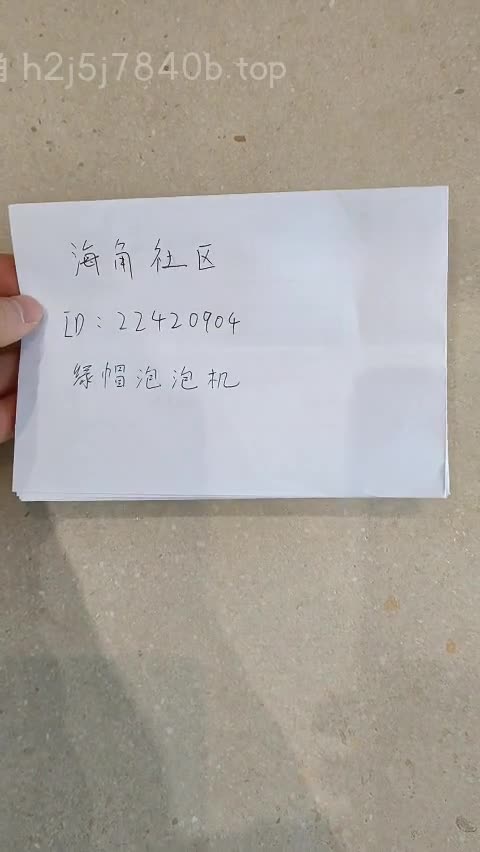 h2j5j7840b.top
海角社区
ID:22420904
绿帽泡泡机